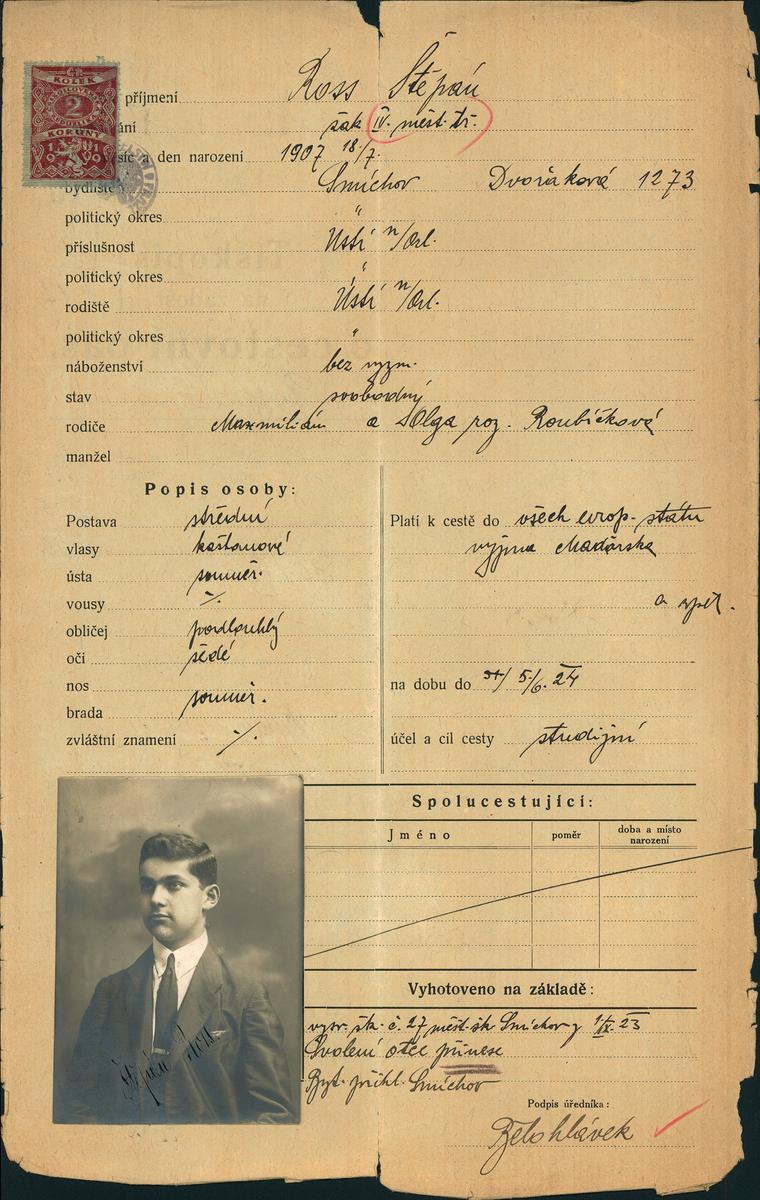 KOLEK
ČESKOSLOVENSKÁ REPUBLIKA
2
KORUNY
1919
příjmení Ross Štěpán
žák IV. měšt. tř.
a den narození 1907 18/7.
bydliště Smíchov Dvořáková 1273
politický okres "
příslušnost Ústí n/Orl.
politický okres "
rodiště Ústí n/Orl.
politický okres "
náboženství bez vyzn.
stav svobodný
rodiče Maxmilián a Olga roz. Roubíčková
manžel
Popis osoby:
Postava střední
vlasy kaštanové
ústa souměr.
vousy ·/.
obličej podlouhlý
oči šedé
nos
souměr.
brada
zvláštní znamení ·/.
Platí k cestě do všech evrop. států
vyjma Maďarska
a zpět.
na dobu do 5/6. 24
účel a cíl cesty studijní
Spolucestující:
Jméno poměr doba a místo narození
Vyhotoveno na základě:
vysv. šk. č. 27 měšt. šk. Smíchov z 1/IX. 23
Svolení otce přinese
Byt. přihl. Smíchov
Podpis úředníka:
Bělohlávek
Štěpán Ross